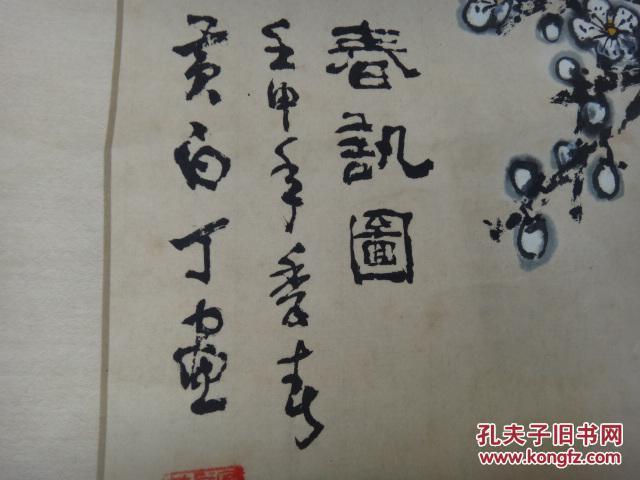 春訊圖
壬申年季春
黄白丁画
孔夫子旧书网
www.kongfz.com